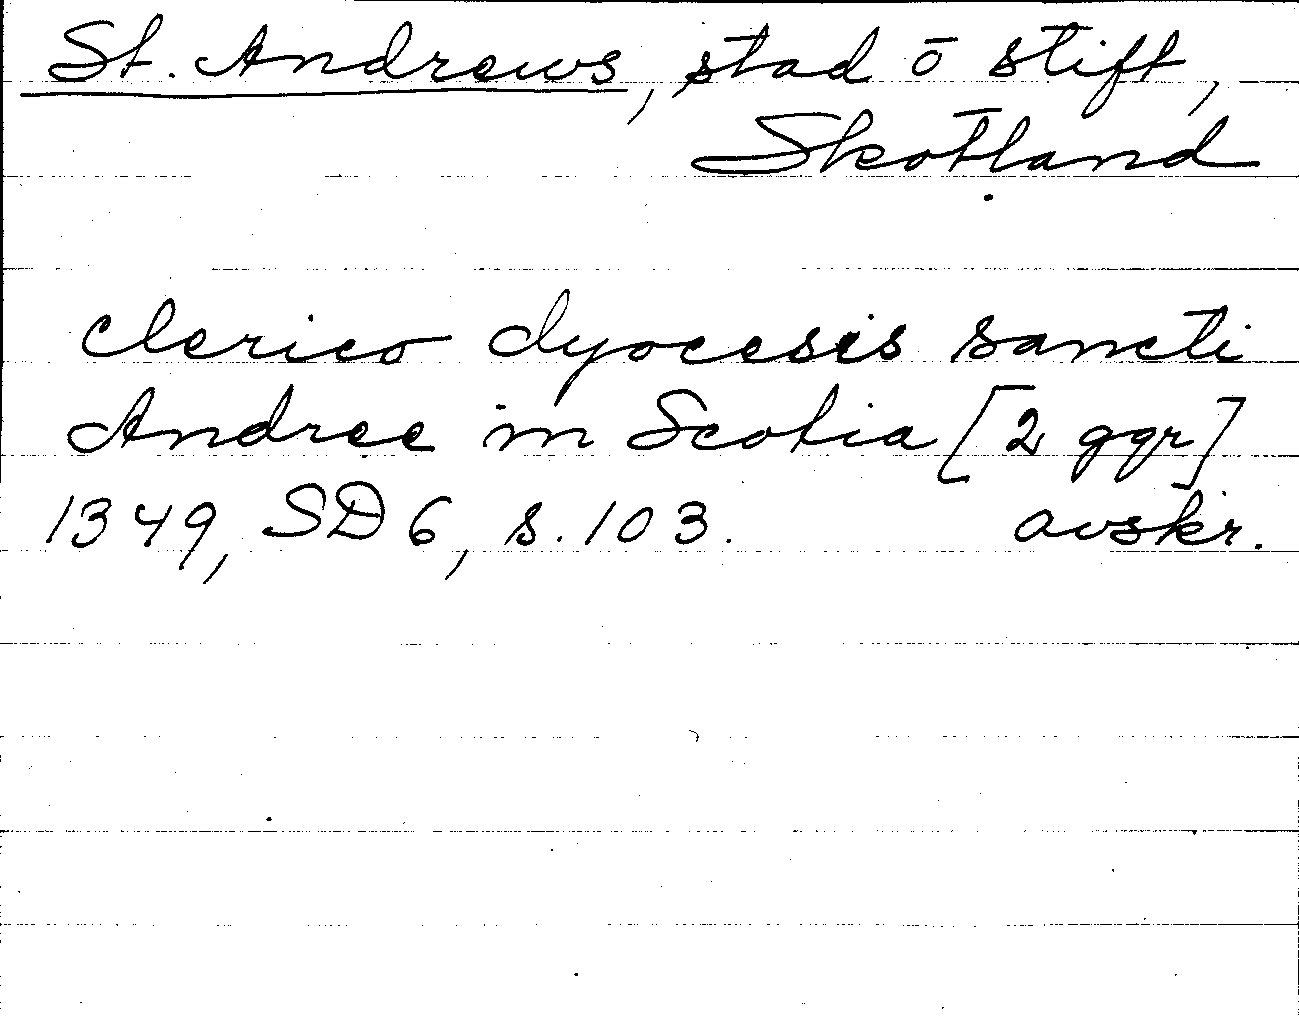 St. Andrews, stad o stift,
Skottland
clerico dyocesis sancti
Andree in Scotia [2 ggr]
1349, SD 6, s. 103. avskr.